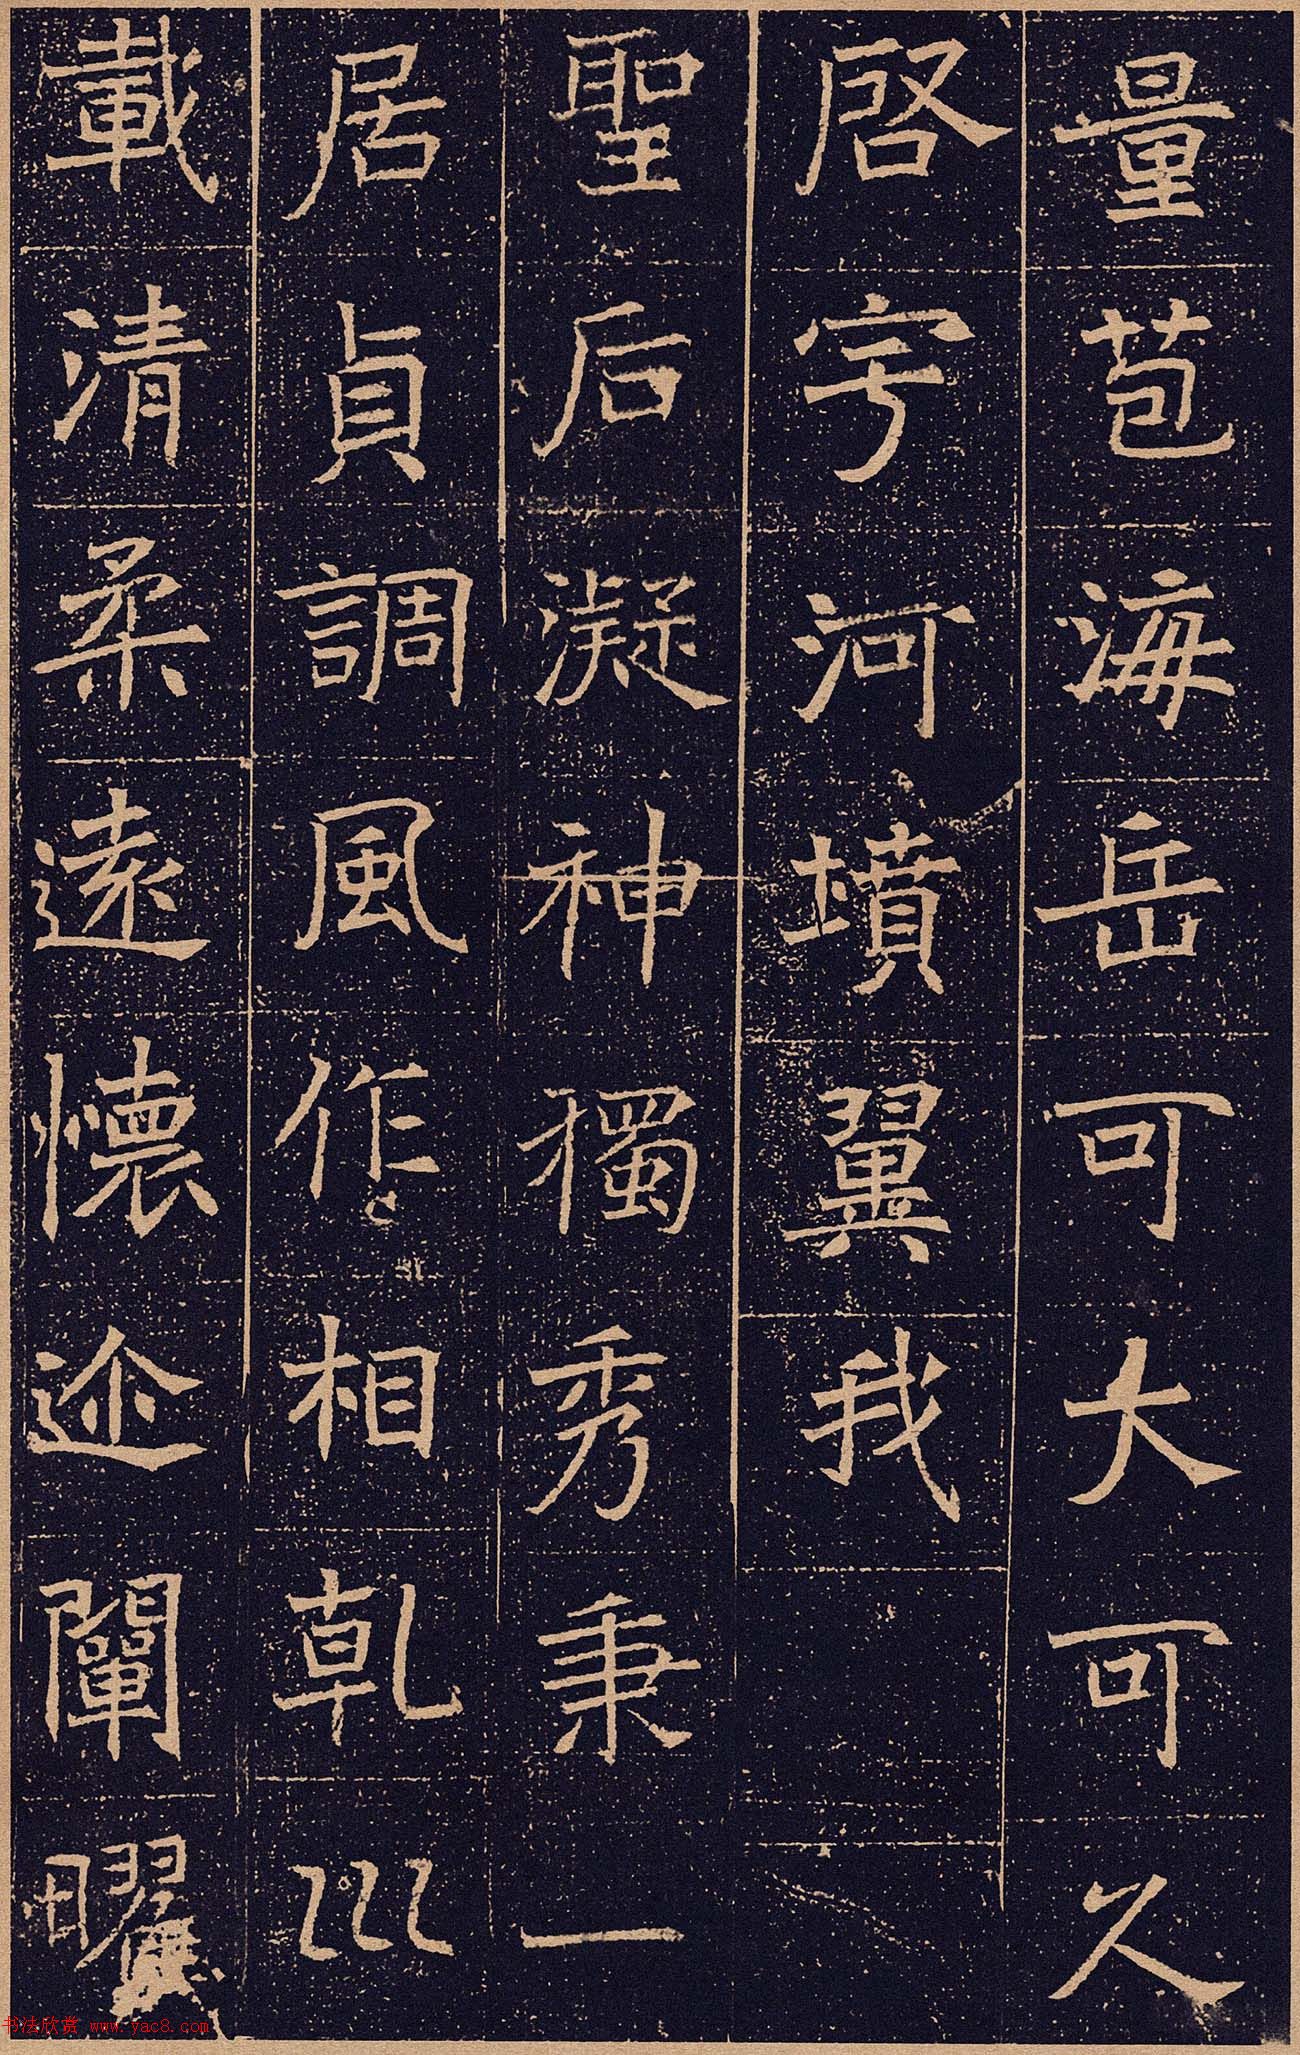 量苞海岳可大可久
啓宇河墳翼我
聖后凝神獨秀秉一
居貞調風作相乹巛
載清柔遠懷迩闡曜
书法欣赏 www.yac8.com